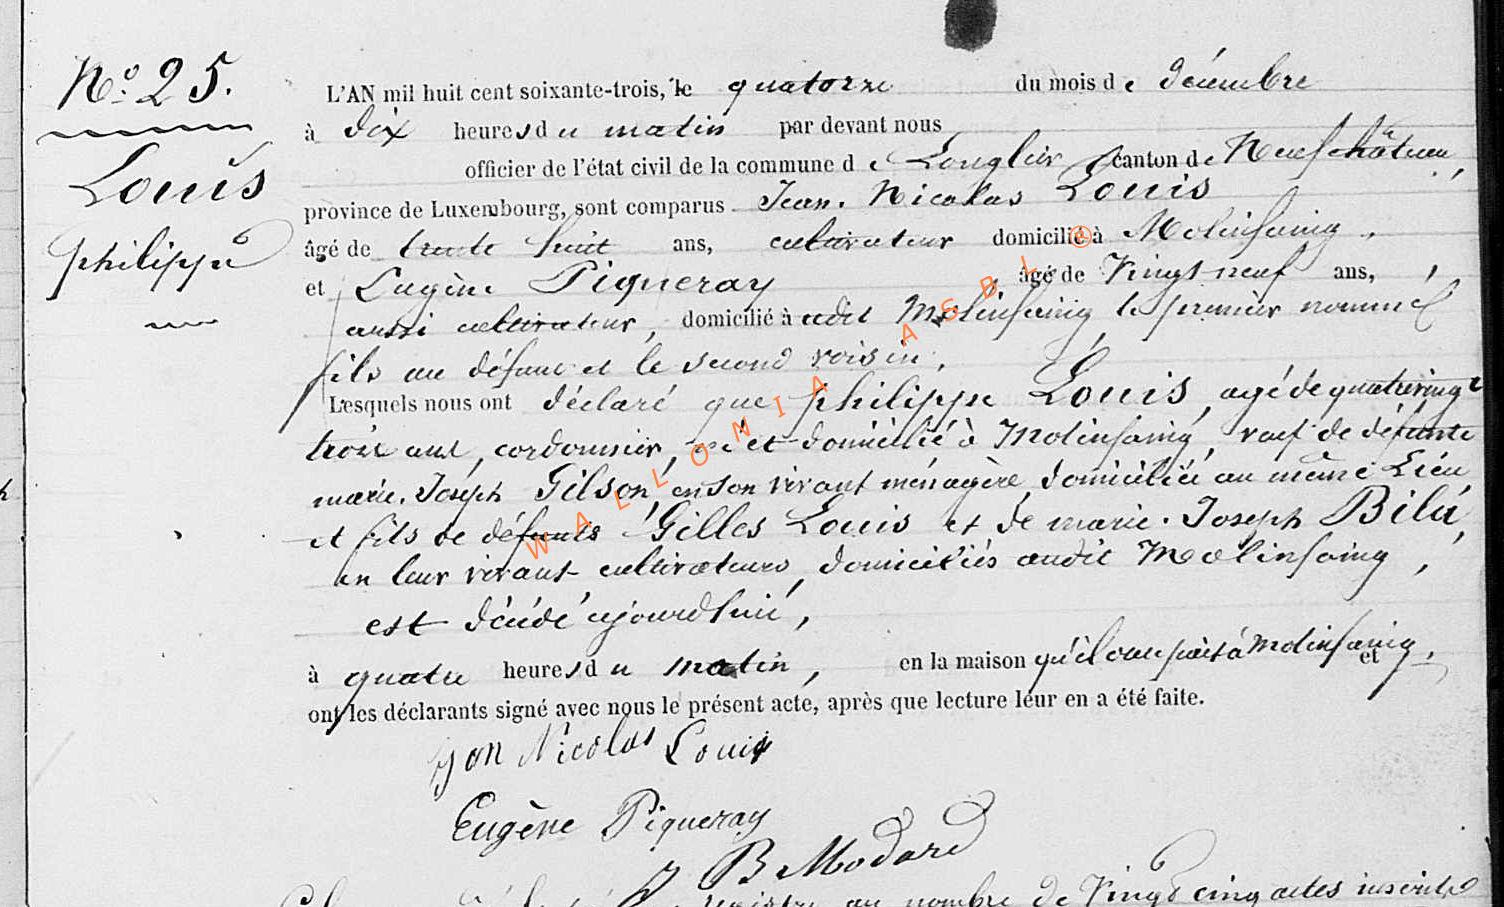 No. 25.
Louis
philippe
L'AN mil huit cent soixante-trois, le quatorze du mois de décembre
à dix heures du matin par devant nous
officier de l'état civil de la commune de Longlier, canton de Neufchâteau,
province de Luxembourg, sont comparus Jean. Nicolas Louis
âgé de trente huit ans, cultivateur domicilié à Molinfaing,
et Eugène Piqueray âgé de Vingt neuf ans,
aussi cultivateur, domicilié à udit Molinfaing le premier nommé
fils du défunt et le second voisin,
Lesquels nous ont déclaré que philippe Louis, agé de quatrevingt
trois ans, cordonnier, né et domicilié à Molinfaing, veuf de défunte
marie. Joseph Gilson, en son vivant ménagère, domiciliée au même Lieu
et fils de défunts Gilles Louis et de marie. Joseph Bilu,
en leur vivant cultivateurs, domiciliés audit Molinfaing,
est décédé ajourdhui,
à quatre heures du matin, en la maison qu'il occupait à Molinfaing, et
ont les déclarants signé avec nous le présent acte, après que lecture leur en a été faite.
jan Nicolas Louis
Eugène Piqueray
J B Modard
au nombre de Vingt cinq actes inscrits
WALLONIA ASBL ®